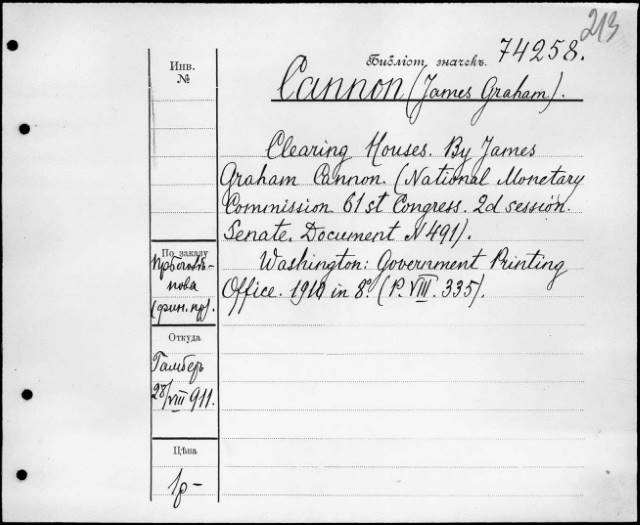 213
Библіот. значекъ. 74258.
Инв.
№
Cannon (James Graham).
Clearing Houses. By James
Graham Cannon. (National Monetary
Commission 61st Congress. 2d session.
Senate. Document N 491).
Washington: Government Printing
Office. 1910 in 8º. (P. VIII. 335).
По заказу
(фин. пр).
Откуда
Гамберъ
28/VIII 911.
Цѣна
1р-